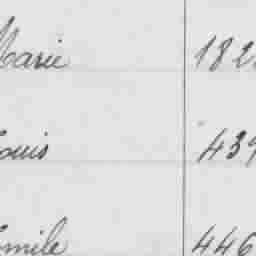 Marie 182
Louis 439
Emile 446